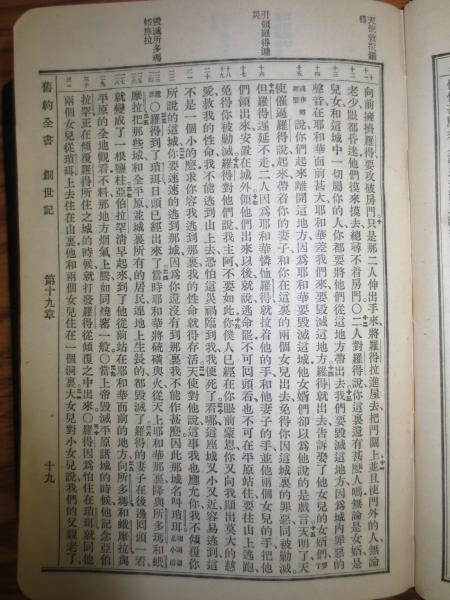 天使救護羅得
向前擁擠羅得要攻破房門只是那二人伸出手來將羅得拉進屋去把門關上並且使門外的人無論
老少眼都昏迷他們摸來摸去總尋不着房門〇二人對羅得說你這裏還有甚麽人嗎無論是女婿是
兒女和這城中一切屬你的人你都要將他們從這地方帶出去我們要毀滅這地方因為城內罪惡的
聲音在耶和華面前甚大耶和華差我們來要毀滅這地方羅得就出去告訴娶了他女兒的女婿們
說你們起來離開這地方因為耶和華要毀滅這城他女婿們卻以為他說的是戲言天明了天
使催逼羅得說起來帶着你的妻子和你在這裏的兩個女兒出去免得你因這城裏的罪惡同被勦滅
但羅得遲延不走二人因為耶和華憐恤羅得就拉着他的手和他妻子的手並他兩個女兒的手把他
們領出來安置在城外領他們出來以後就說逃命罷不可回頭看也不可在平原站住要往山上逃跑
免得你被勦滅羅得對他們說我主阿不要如此你僕人已經在你眼前蒙恩你又向我顯出莫大的慈
愛救我的性命我不能逃到山上去恐怕這災禍臨到我我便死了看哪這座城又小又近容易逃到這
不是一個小的麽求你容我逃到那裏我的性命就得存活天使對他說這事我也應允你我不傾覆你
所說的這城你要速速的逃到那城因為你還沒有到那裏我不能作甚麽因此那城名叫瑣珥
〇羅得到了瑣珥日頭已經出來了當時耶和華將硫磺與火從天上耶和華那裏降與所多瑪和蛾
摩拉把那些城和全平原並城裏所有的居民連地上生長的都毀滅了羅得的妻子在後邊回頭一看
就變成了一根鹽柱亞伯拉罕清早起來到了他從前站在耶和華面前的地方向所多瑪和蛾摩拉與
平原的全地觀看不料那地方烟氣上騰如同燒窰一般〇當上帝毀滅平原諸城的時候他記念亞伯
拉罕正在傾覆羅得所住之城的時候就打發羅得從傾覆之中出來〇羅得因為怕住在瑣珥就同他
兩個女兒從瑣珥上去住在山裏他和兩個女兒住在一個洞裏大女兒對小女兒說我們的父親老了
舊約全書 創世記 第十九章 十九